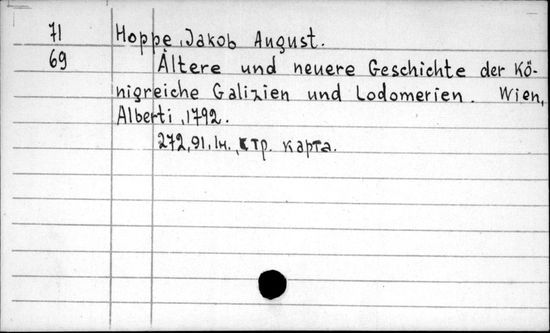 71 Hoppe, Jakob August.
69 Ältere und neuere Geschichte der Kö-
nigreiche Galizien und Lodomerien. Wien,
Alberti, 1792.
272, 91, 1н., стр. карта.